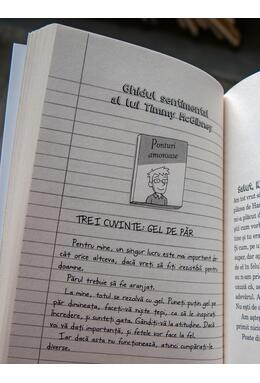 Ghidul sentimental
al lui Timmy McGibney
Ponturi
amoroase
TREI CUVINTE: GEL DE PĂR
Pentru mine, un singur lucru este mai important de
cât orice altceva, dacă vreți să fiți irezistibil pentru
doamne.
Părul trebuie să fie aranjat.
La mine, totul se rezolvă cu gel. Puneți puțin gel pe
păr dimineața, faceți-vă niște țepi, ca să le inspirați
încredere, și sunteți gata. Gândiți-vă la atitudine. Dacă
voi vă dați importanță, și fetele vor face la fel.
Iar dacă asta nu funcționează, atunci cumpărați-le
diverse.
Salut, K
Am tot vrut s